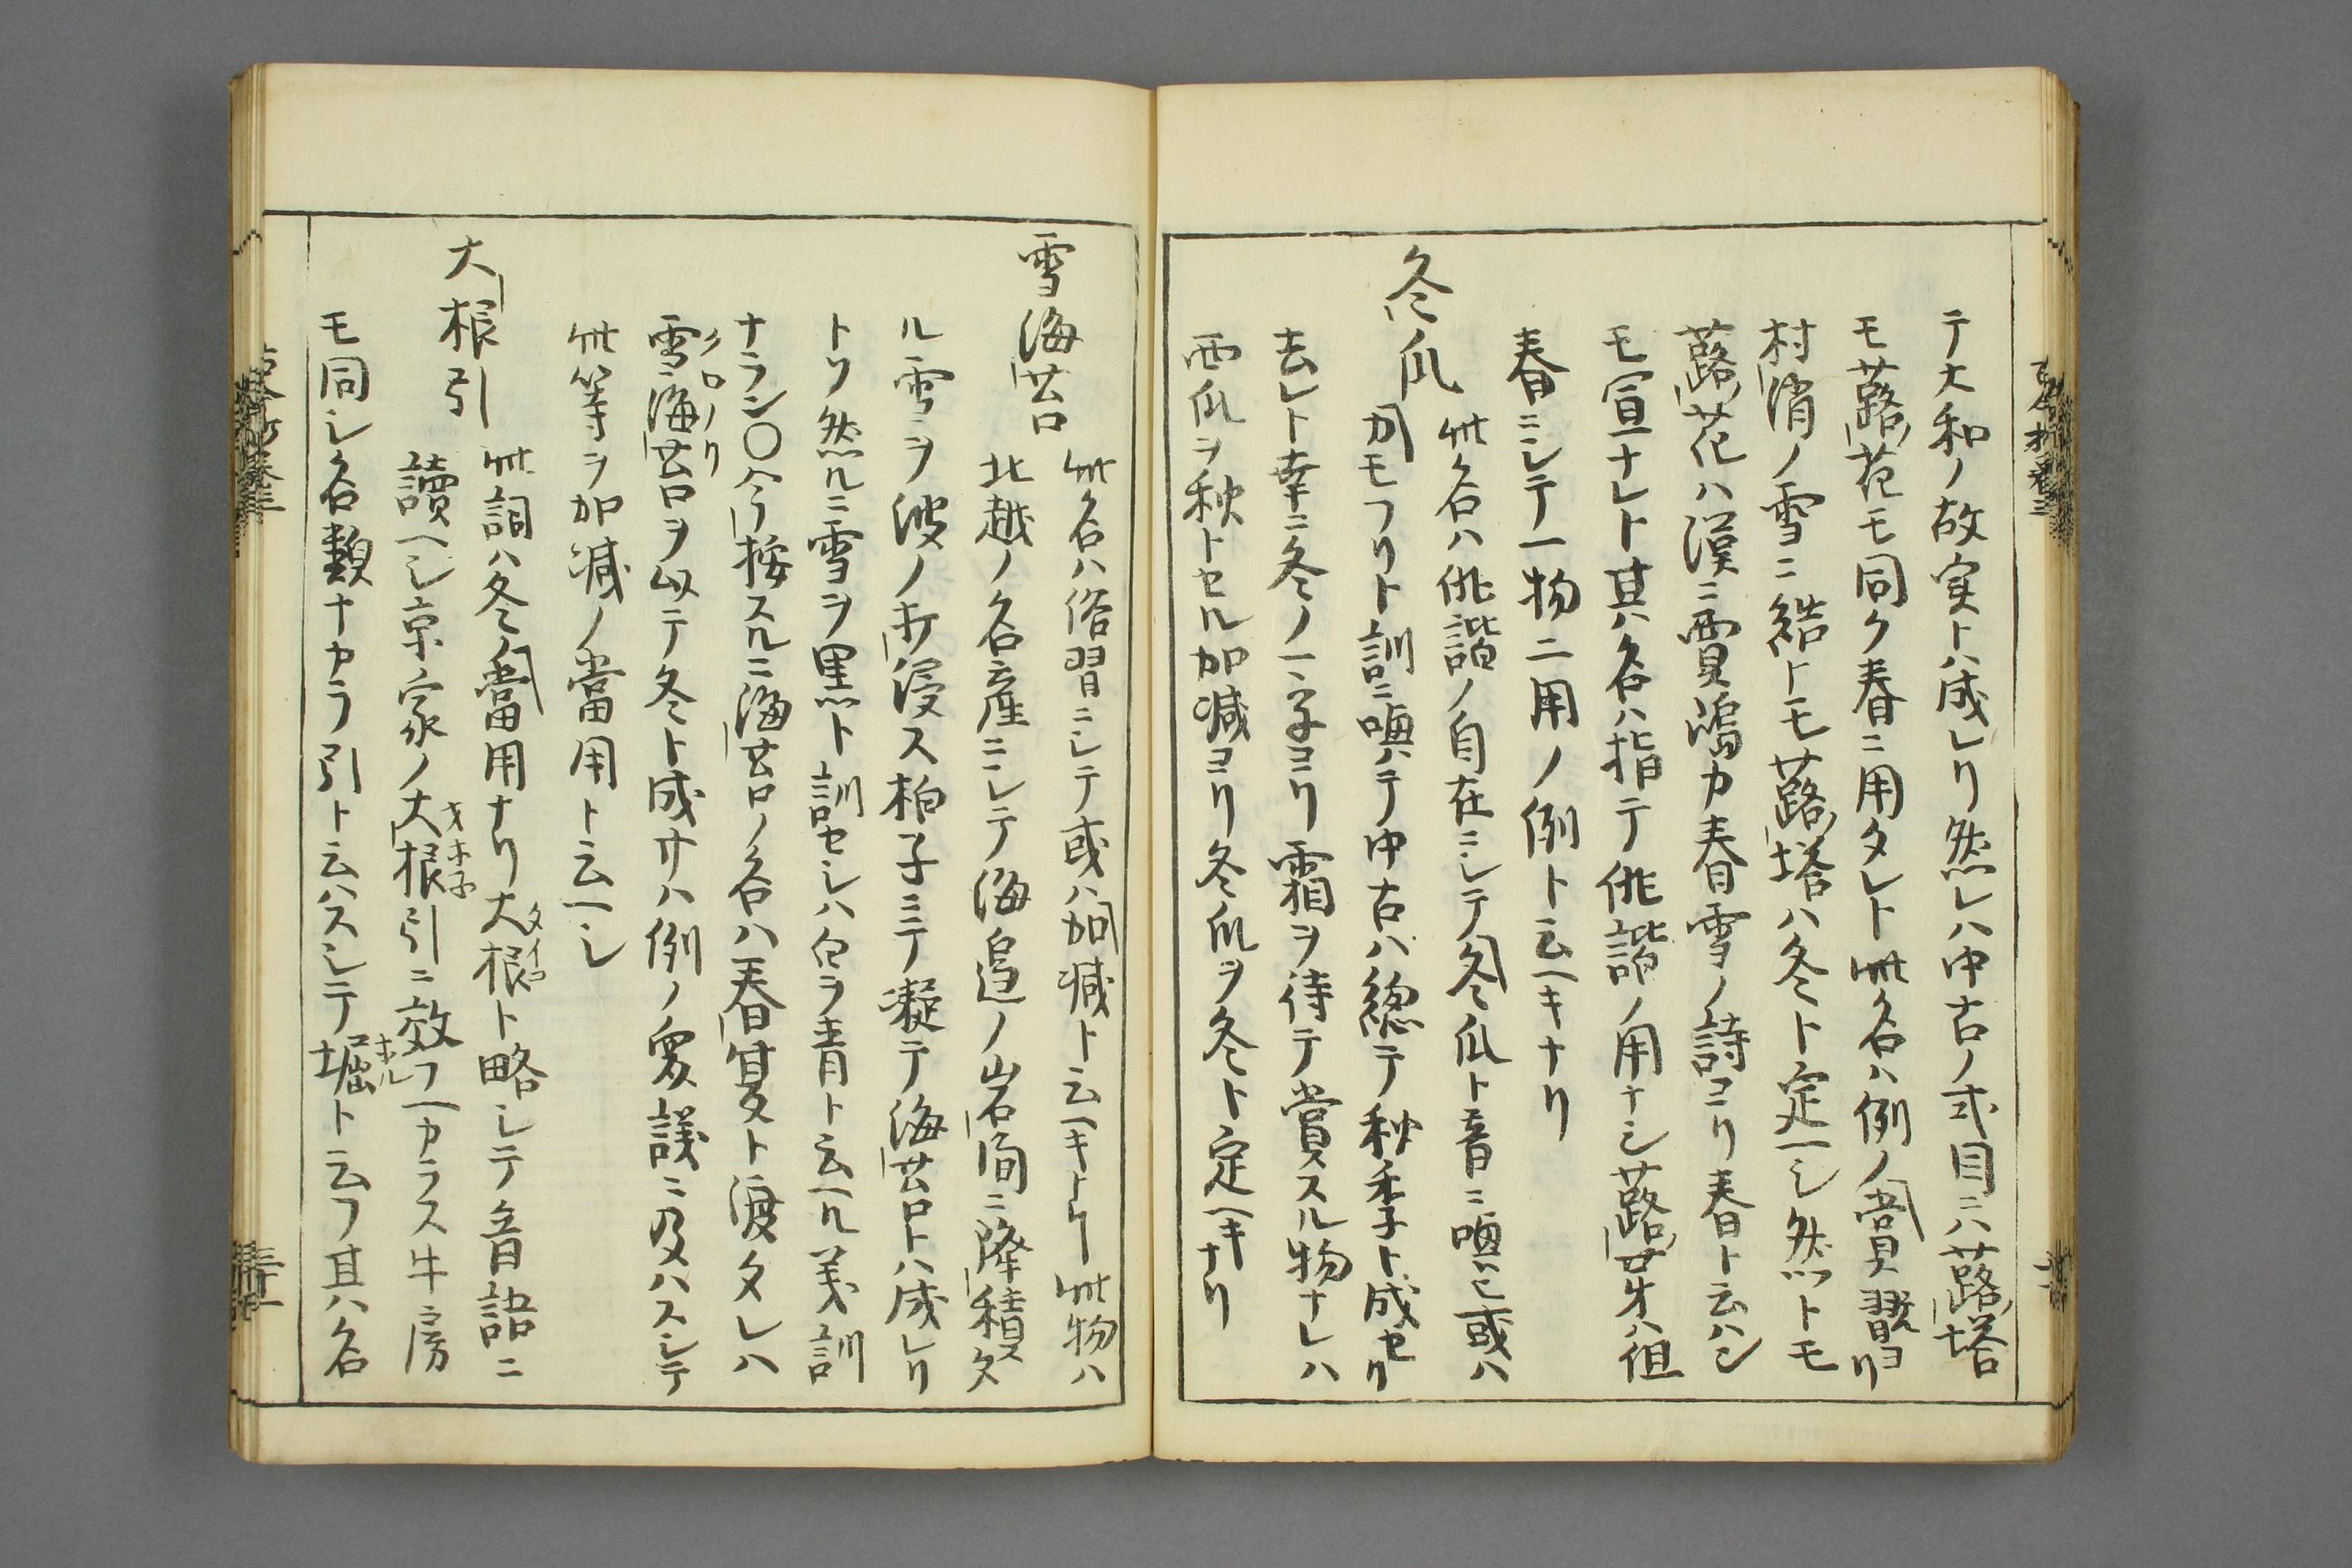 テ大和ノ故実トハ成レリ然レハ中古ノ式目ニハ蕗塔
モ蕗花モ同ク春ニ用タレト此名ハ例ノ賞翫ヨリ
村消ノ雪ニ結トモ蕗塔ハ冬ト定ヘシ然トモ
蕗花ハ漢ニ賈嶋カ春雪ノ詩ヨリ春ト云ハン
モ宣ナレト其名ハ指テ俳諧ノ用ナシ蕗芽ハ但
春ニシテ一物二用ノ例ト云ヘキナリ
冬瓜
此名ハ俳諧ノ自在ニシテ冬瓜ト音ニ喚ヒ或ハ
カモフリト訓ニ喚ハテ中古ハ総テ秋季ト成セリ
去レト幸ニ冬ノ一字ヨリ霜ヲ待テ賞スル物ナレハ
西瓜ヲ秋トセル加減ヨリ冬瓜ヲ冬ト定ヘキナリ
雪海苔
此名ハ俗習ニシテ或ハ加減ト云ヘキトリ此物ハ
北越ノ名産ニシテ海邉ノ岩間ニ降積タ
ル雪ヲ波ノ打浸ス拍子ミニテ凝テ海苔トハ成レリ
トソ然ルニ雪ヲ黒ト訓セシハ白ヲ青ト云ヘル義訓
ナラン〇今按スルニ海苔ノ名ハ春夏ト渡タレハ
雪海苔ヲ以テ冬ト成サハ例ノ衆議ニ及ハスシテ
クロノリ
此等ヲ加減ノ當用ト云ヘシ
大根引
此詞ハ冬ノ當用ナリ大根ト略シテ音語ニ
タイコ
讀ヘシ京家ノ大根引ニ效フヘカラス牛房
オホネ
モ同シ名類ナカラ引ト云ハスシテ堀ト云フ其ハ名
ホル